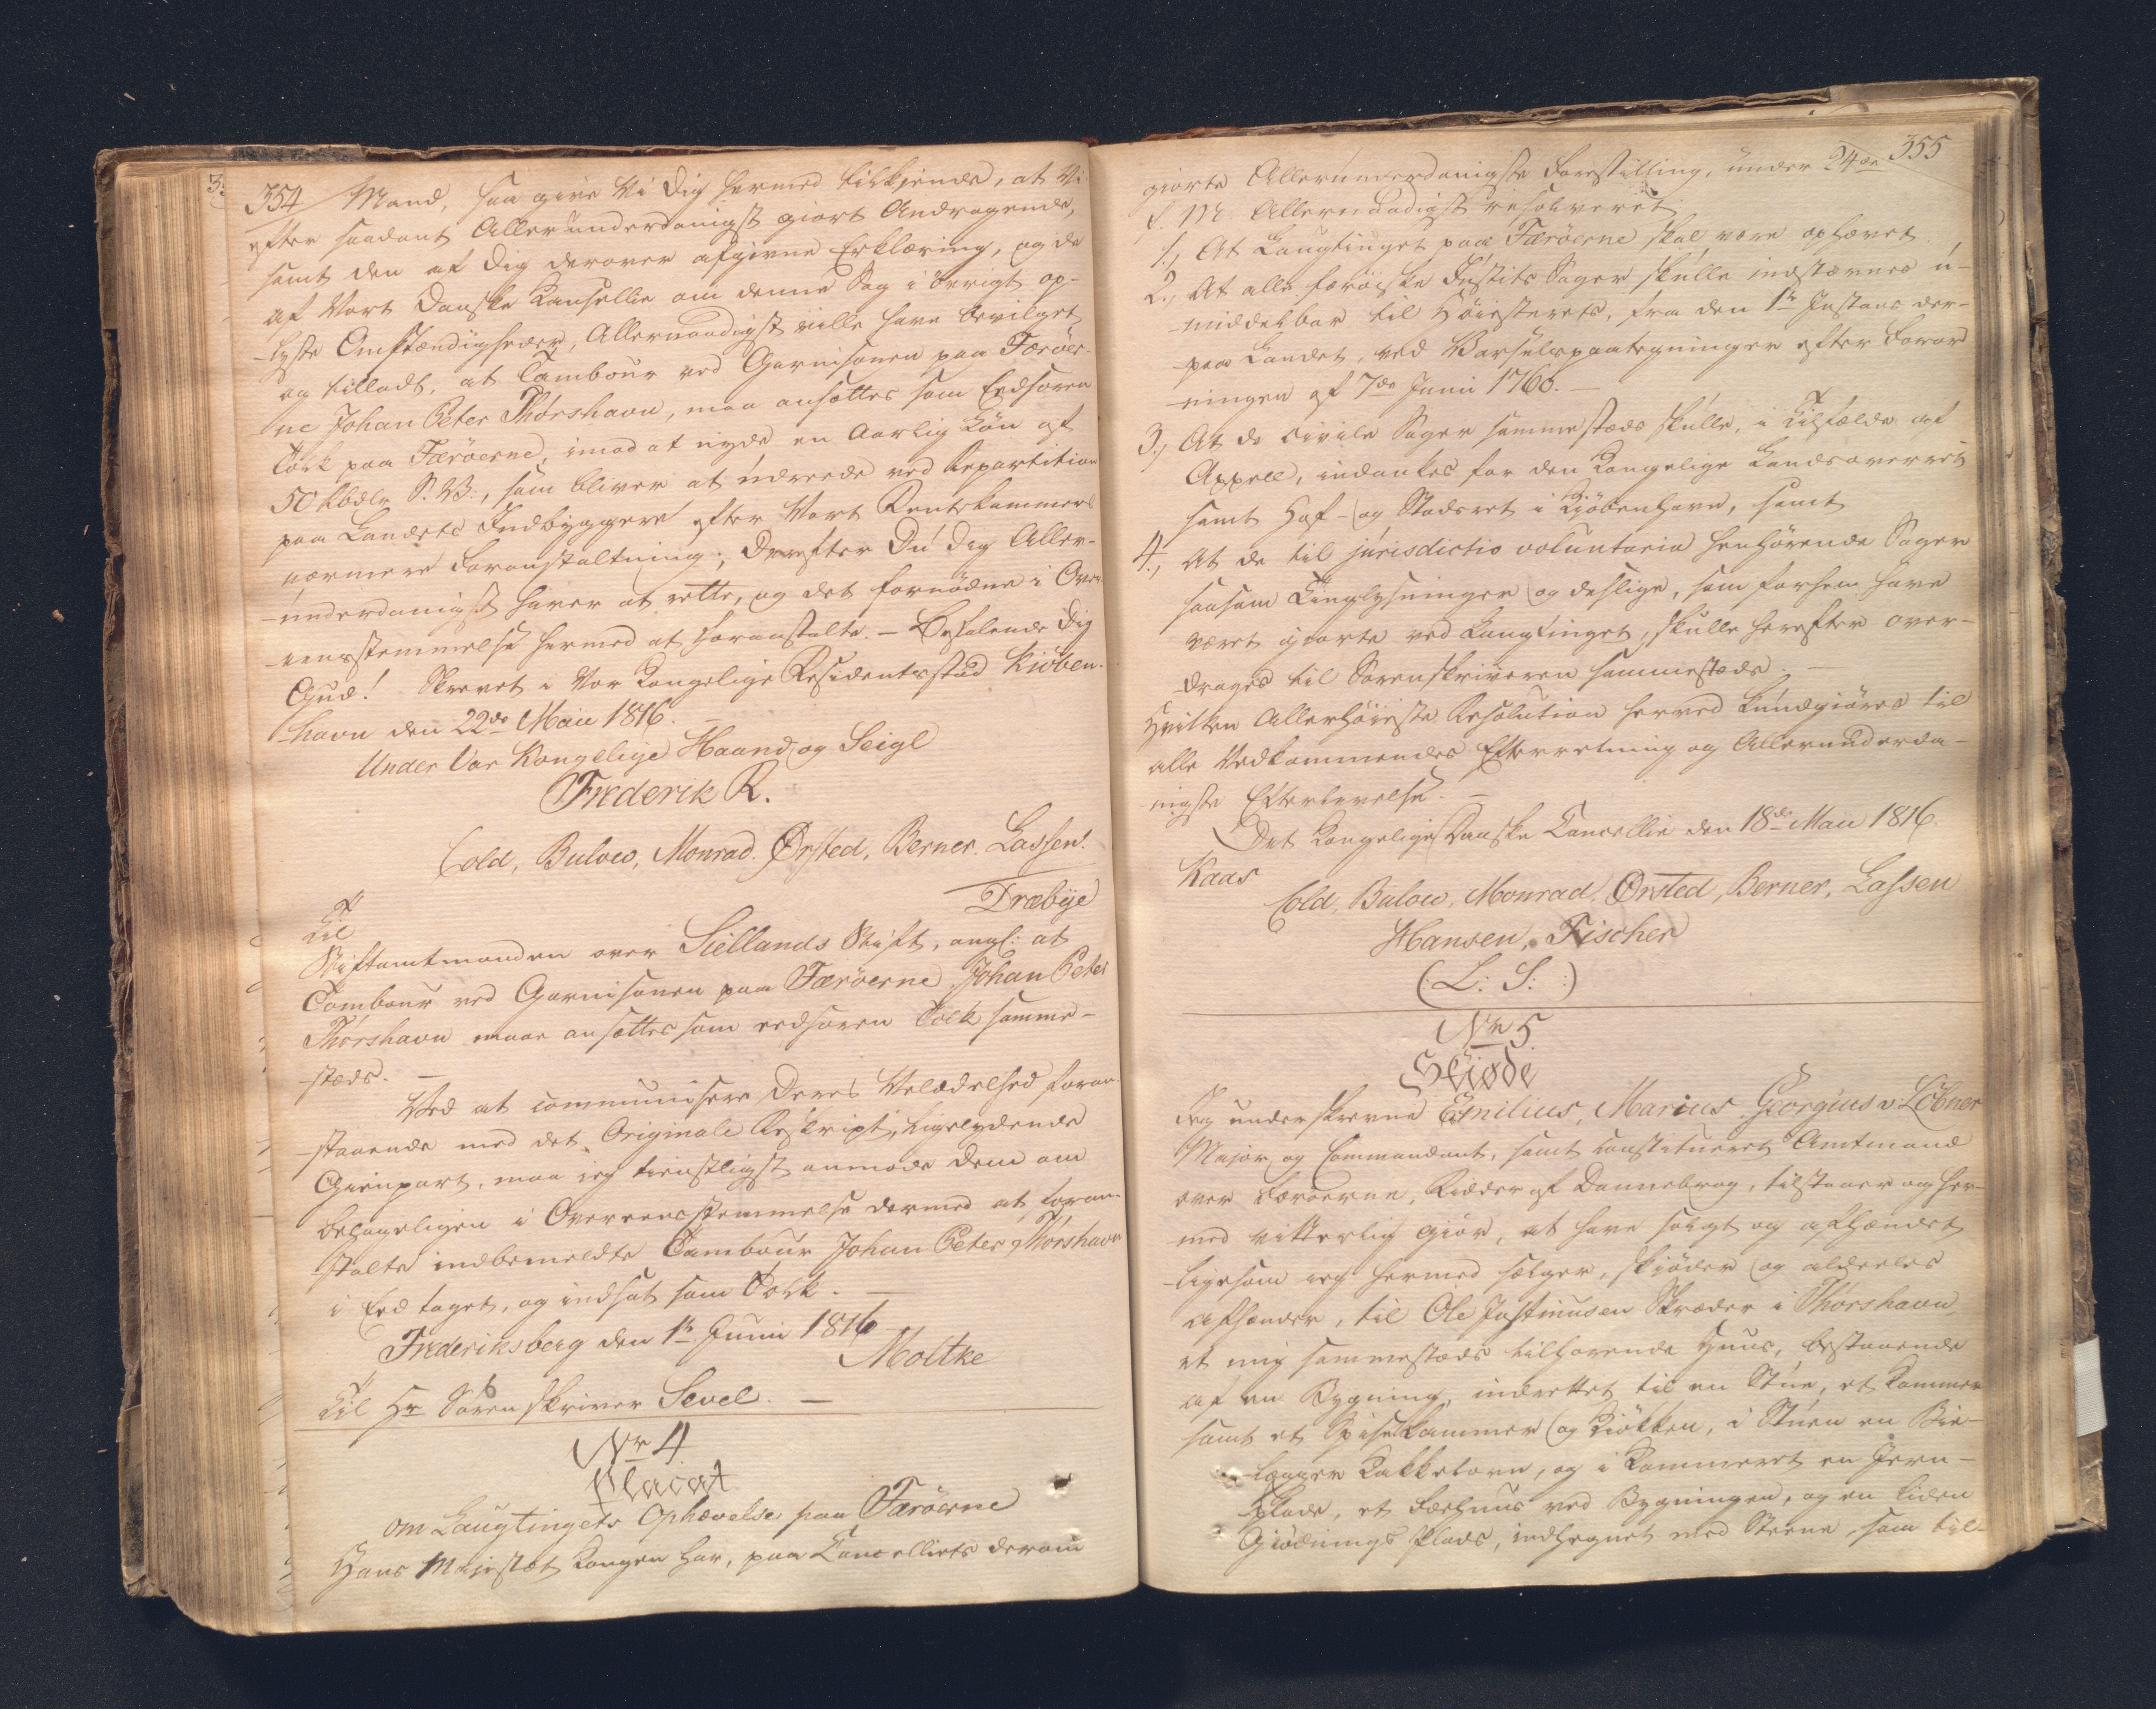 354 Mand, saa give Vi Dig hermed tilkjende, at Vi
efter saadant Allerunderdanigst giort Andragende,
samt den af Dig derover afgivne Erklæring, og de
af Vort Danske Kansellie om denne Sag i övrigt op-
-lyste Omstændigheder, Allernaadigst ville have bevilget
og tilladt, at Tambour ved Garnisonen paa Færöer-
ne Johan Peter Thórshavn, maa ansættes som Eedsoren
Tolk paa Færöerne, imod at nyde en Aarlig Lön af
50 Rbdlr S.V:, som bliver at udreede ved Repartition
paa Landets Indbyggere efter Vort Rentekammers
nærmere Foranstaltning; Derefter Du Dig Aller-
-underdanigst haver at rette, og det fornödne i Over-
-eensstemmelse hermed at foranstalte. - Befalende Dig
Gud! Skrevet i Vor Kongelige Residentsstad Kiöben-
-havn den 22de Maii 1816. -
Under Vor Kongelige Haand og Seigl
Frederik R.
Cold, Bulow, Monrad. Ørsted, Berner. Lassen.
Dræbye
Til
Stiftamtmanden over Siellands Stift, angl: at
Tambour ved Garnisonen paa Færöerne Johan Peter
Thórshavn maae ansættes som eedsoren Tolk samme-
-stæds. -
Ved at communisere Deres Velædelhed foran-
-staaende med det Originale Reskript, ligelydende
Gienpart, maa jeg tienstligst anmode Dem om
behageligen i Overeensstemmelse dermed at foran-
stalte indbemeldte Tambour Johan Peter Thórshavn
i Eed taget, og indsat som Tolk. -
Frederiksberg den 1te Junii 1816
Moltke
Til Hr Sorenskriver Sevel. -
Nr 4
Placat
om Laugtingets Ophævelse paa Færöerne
Hans Majestæt Kongen har, paa Cancelliets derom
355
giorte Allerunderdanigste Forestilling, under 24de
f. M. Allernaadigst resolveret:
1., At Laugtinget paa Færöerne skal være ophævet
2., At alle færöiske Justits Sager skulle indstævnes u-
-middelbar til Höiesteret, fra den 1te Instans der-
-paa Landet, ved Varselspaategninger efter Forord
-ningen af 7de Junii 1760. -
3., At de civile Sager sammestæds skulle, i Tilfælde af
Appell, indankes for den Kongelige Landsoverret
samt Hof- og Stadsret i Kiöbenhavn, samt
4., At de til jurisdictio voluntaria henhörende Sager
saasom Tinglysninger og deslige, som forhen have
været giorte ved Laugtinget, skulle herefter over-
-drages til Sorenskriveren sammestæds. -
Hvilken Allerhöieste Resolution herved kundgiöres til
alle Vedkommendes Efterretning og Allerunderda-
nigste Efterlevelse. -
Det Kongelige Danske Cancellie den 18de Maii 1816.
Kaas
Cold, Bulow, Monrad, Ørsted, Berner, Lassen
Hansen, Fischer
(L: S: :)
Nr 5
Skiøde
Jeg underskrevne Emilius, Marius Georgius v: Löbner
Major og Commandant, samt constitueret Amtmand
over Færöerne, Ridder af Dannebrog, tilstaaer og her-
med vitterlig giör, at have solgt og afhændet
ligesom jeg hermed sælger, skiöder og aldeeles
afhænder, til Ole Justinusen Skræder i Thorshavn
et mig sammestæds tilhørende Huus, bestaaende
af en Bygning, indrettet til en Stúe, et Kammer
samt et Spisekammer og Kiökken, i Stúen en Bie-
-lægger Kakkelovn, og i Kammeret en Jern-
-plade, et Fæehuus ved Bygningen, og en liden
Giödnings Plads, indhegnet med Steene, som til-